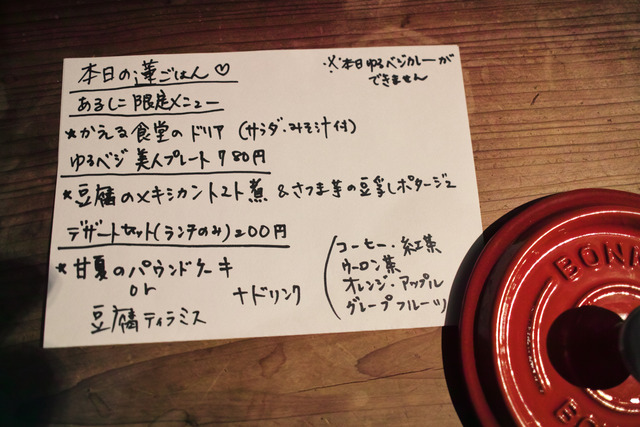 本日の蓮ごはん♡
※本日ゆるベジカレーが
できません
あるしこ限定メニュー
★かえる食堂のドリア(サラダ・みそ汁付)
ゆるベジ美人プレート780円
★豆腐のメキシカントマト煮 &さつま芋の豆乳ポタージュ
デザートセット(ランチのみ)200円
★甘夏のパウンドケーキ
or
豆腐ティラミス
+ドリンク
(コーヒー・紅茶
ウーロン茶
オレンジ・アップル
グレープフルーツ)
BONA